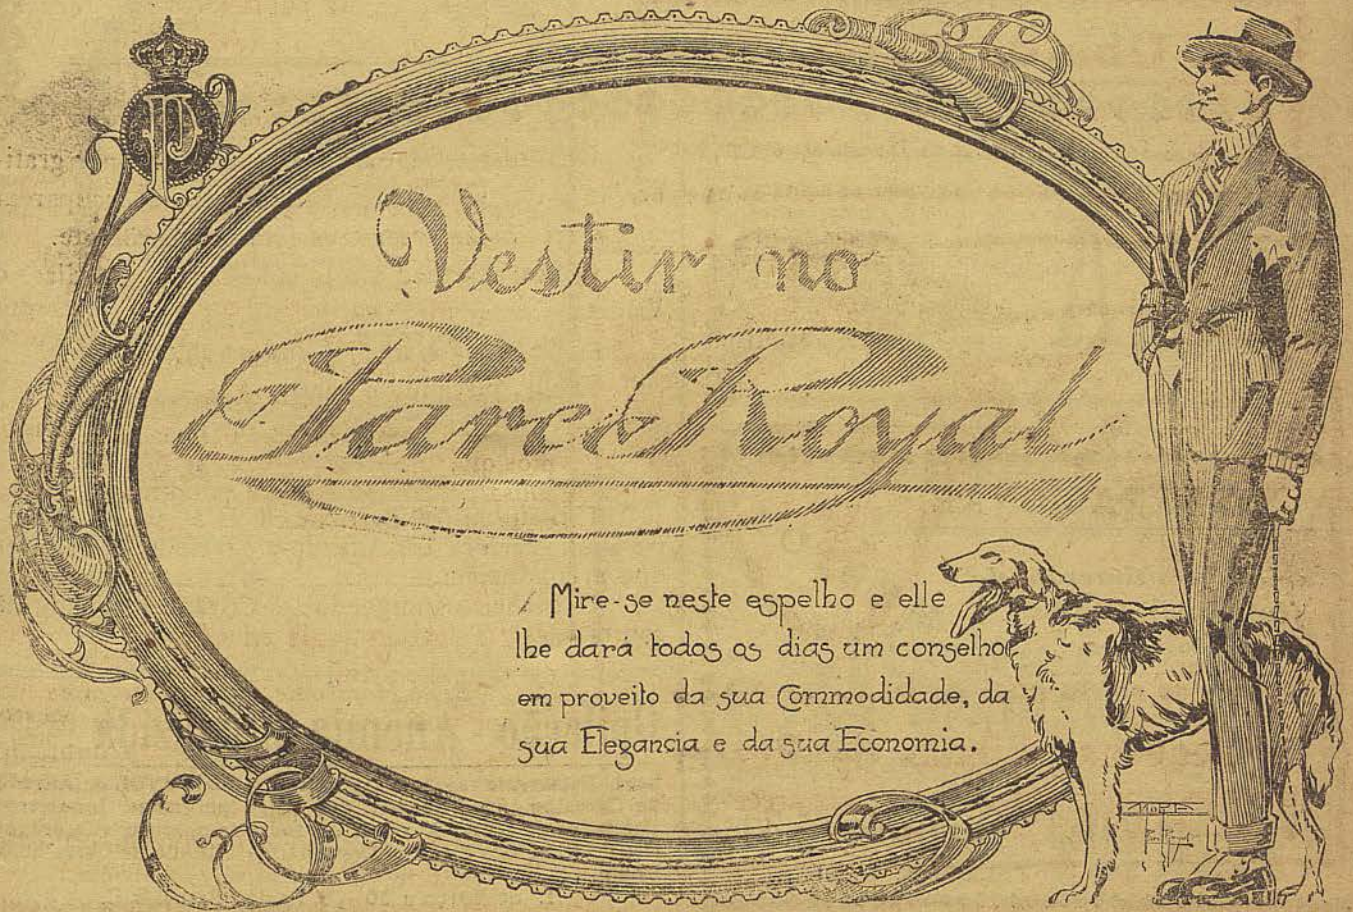 Vestir no
Parc Royal
Mire-se neste espelho e elle
lhe dará todos os dias um conselho
em proveito da sua Commodidade, da
sua Elegancia e da sua Economia.